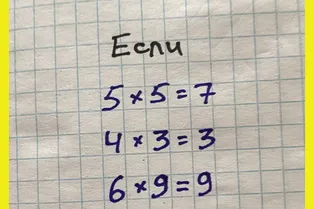 Если
5 × 5 = 7
4 × 3 = 3
6 × 9 = 9